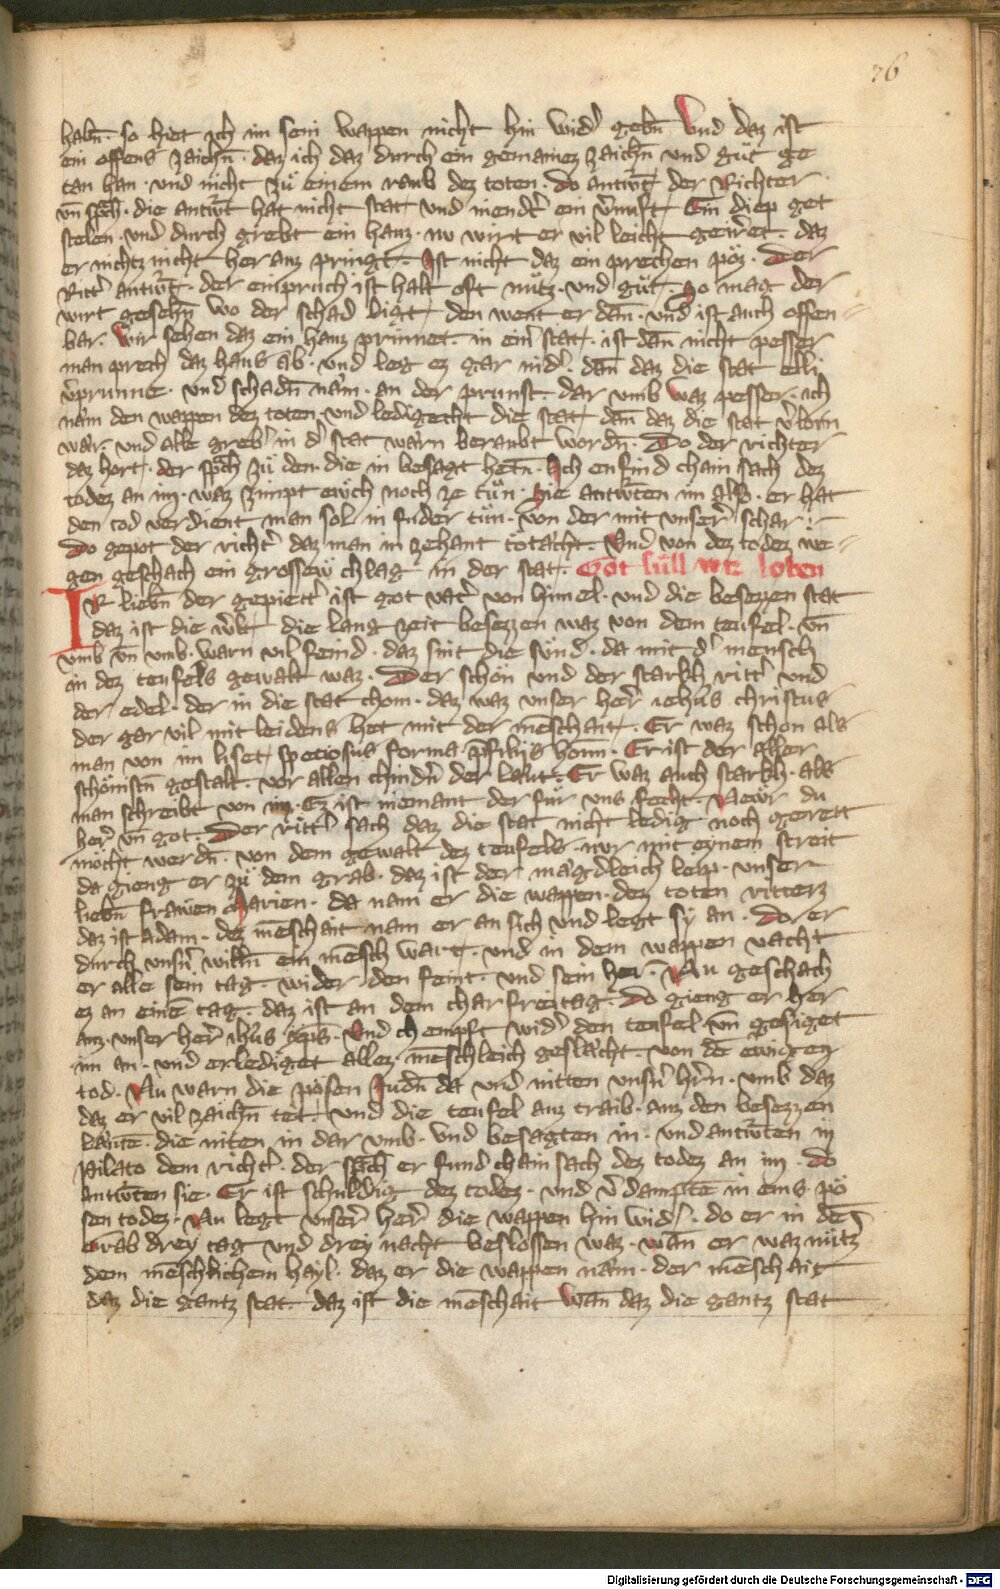 76
habn̄. so hiet ich im sein wappen nicht hin wid' gebn̄ Vnd daz ist
ein offens zaichn̄. daz ich daz durch ein gemainez zaichn̄ vnd gůt ge
tan han. vnd nicht zů einem raub dez toten. Do antwͦrt der Richter
vn̄ sp̄ch. die antwͦrt hat nicht stat vnd niendt' ein v'nuft Ein diep get
stelen. vnd durch grebt ein hauz. nv wirt er vil leicht geirret. daz
er nichtz nicht her auz pringt. Ist nicht daz ein prechen pöz. Der
Ritt' antwͦrt. der einpruch ist halt oft nutz. vnd gůt. so mag der
wirt gesehn̄ wo der schad ligt den went er dan̄. vnd ist auch offen
bar. Wir sehen daz ein hauz prinnet. in ein' stat. ist dan̄ nicht pesser
man prech daz haus ab. vnd leg ez gar nid'. dan̄ daz die stat elli
v'prunne. vnd schadn̄ näm. an der prunst. dar vmb waz pesser. ich
näm den wappen dez toten. vnd ledigecht die stat dan̄ daz die stat v'lorn
wär. vnd alle greb' in d' stat wärn beraubt wordn̄. Do der richter
daz hort. der sp̄ch zů den. die in besagt hetn̄. Ich enfind chain sach dez
todez an im. waz zimpt ewch noch ze tůn. Sie antwͦrten im als. er hat
den tod verdient man sol in furder tůn. von der mit vnser' schar
Do gepot der richt' daz man in zehant tötächt. Vnd von dez todez we
gen geschach ein grossew chlag in der stat. Got sull wir loben
IR liebn̄ der gepiett' ist got vat' von himel. vnd die besezzen stat
daz ist die w'lt die lang zeit besezzen waz von dem teufel. vn̄
vmb vn̄ vmb. warn vil feind. daz sint die sünd. da mit d' mensch
in dez teufels gewalt waz. Der schön vnd der starkh ritt' vnd
der edel. der in die stat chom. daz waz vnser her' iehus christus
der gar vil mit leidens het mit der mēschait. Er waz schon als
man von im liset speciosus forma p̄ filijs hom̄. Er ist der aller
schönistn̄ gestalt. vor allen chindn̄ der läut. Er waz auch starkh. als
man schreibt von im. Ez ist niemant der für vns fecht. Newr du
her' vn̄ got. Der ritt' sach daz die stat nicht ledig noch gerett
möcht werdn̄. von dem gewalt dez teufels. nur mit eynem streit
da gieng er zů dem grab. daz ist der mägdleich leip. vnser
liebn̄ frawen Marien. da nam er die wappen. dez toten ritterz
daz ist adam. dez mēschait nam er an sich vnd legt sy an. Do er
durch vnsn̄ willn̄ ein mēsch wart. vnd in dem wappen vacht
er alle sein tag. wider den feint. vnd sein her. Nu geschach
ez an einē tag. daz ist an dem charfreitag. Do gieng er her
auz. vnser her' ihus xp̄s. Vnd chempft wid' den teufel. vn̄ gesiget
im an. vnd erlediget allez mēschleich geslächt. von dē ewigen
tod. Nu warn die posen Judn̄ da vnd nitten vnsn̄ h'rn. vmb daz
daz er vil zaichn̄ tet vnd die teufel auz traib. auz den besezzen
läute. die niten in dar vmb. vnd besagten in. vnd antwͦrten in
Pilato dem richt'. der sp̄ch er fund chain sach dez todez an im. Do
antwͦrten sie. Er ist schuldig dez todez. vnd v'dampte in eins pö
sen todez. Nu legt vnser her' die wappen hin wid'. do er in dē
Grab drey tag vnd drey nacht beslossen waz. wan̄ er waz nütz
dem mēschlichem hayl. daz er die wappen näm. der mēschait
daz die gantz stat. daz ist die mēschait wan̄ daz die gantz stat
Digitalisierung gefördert durch die Deutsche Forschungsgemeinschaft - DFG